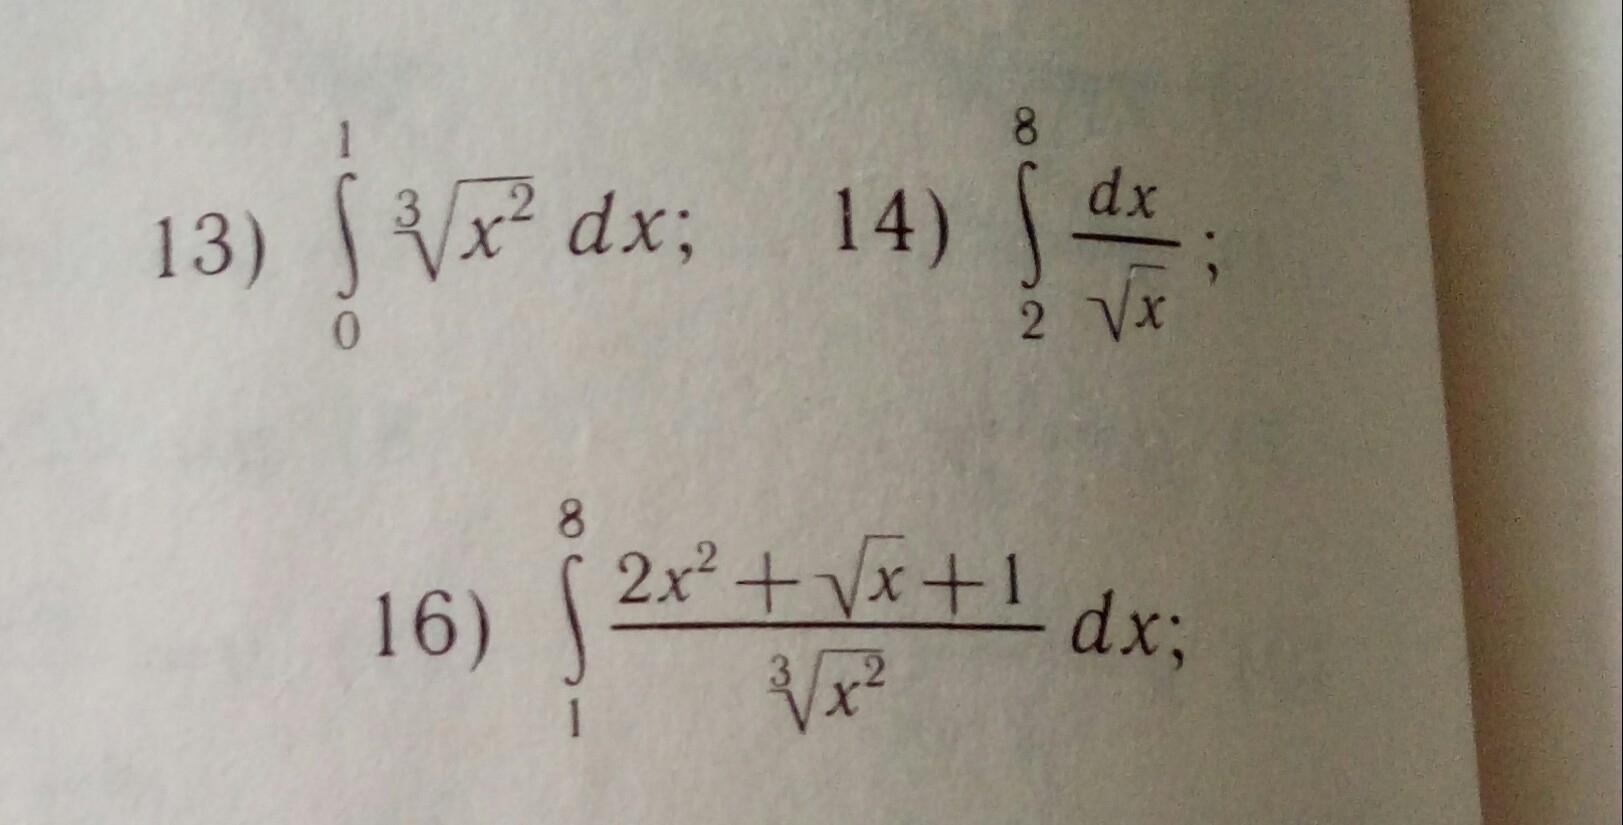 13) \int_{0}^{1} \sqrt[3]{x^2} dx; 14) \int_{2}^{8} \frac{dx}{\sqrt{x}};
16) \int_{1}^{8} \frac{2x^2 + \sqrt{x} + 1}{\sqrt[3]{x^2}} dx;